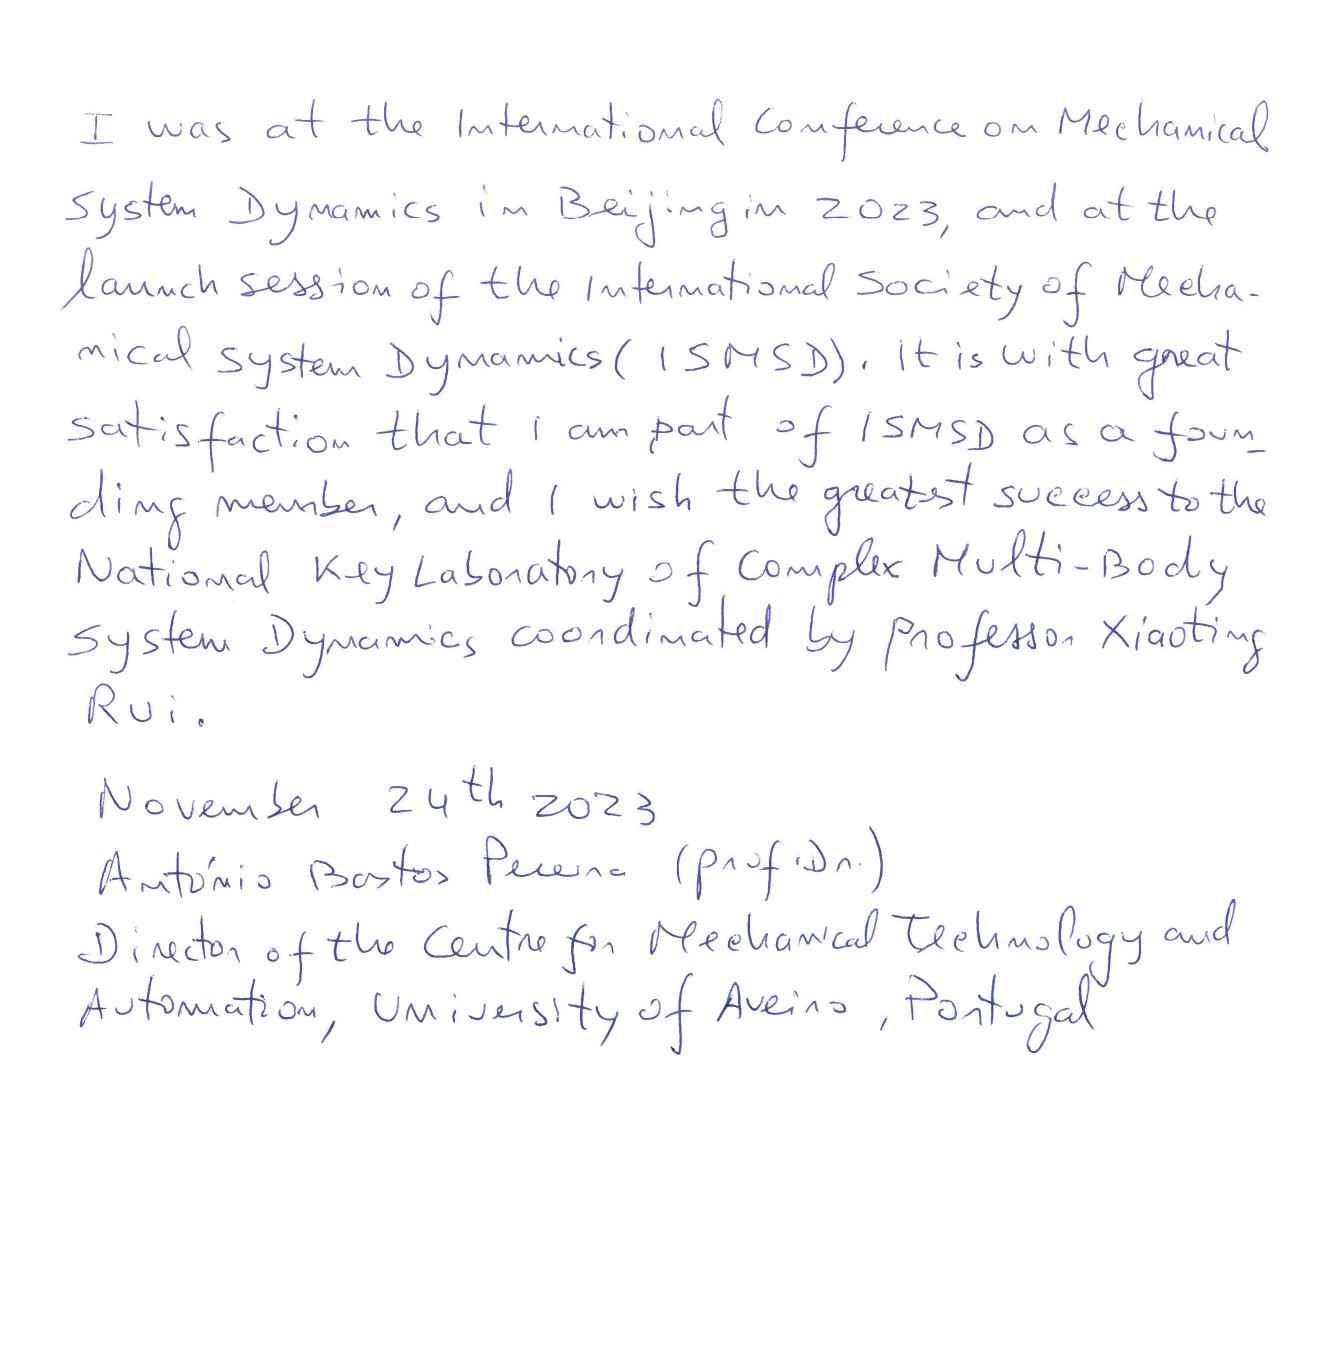 I was at the International Conference on Mechanical
System Dynamics in Beijing in 2023, and at the
launch session of the International Society of Mecha-
nical System Dynamics (ISMSD). It is with great
satisfaction that i am part of ISMSD as a foun-
ding member, and I wish the greatest success to the
National Key Laboratory of Complex Multi-Body
System Dynamics coordinated by Professor Xiaoting
Rui.
November 24th 2023
António Bastos Pereira (Prof. Dr.)
Director of the Centre for Mechanical Technology and
Automation, University of Aveiro, Portugal